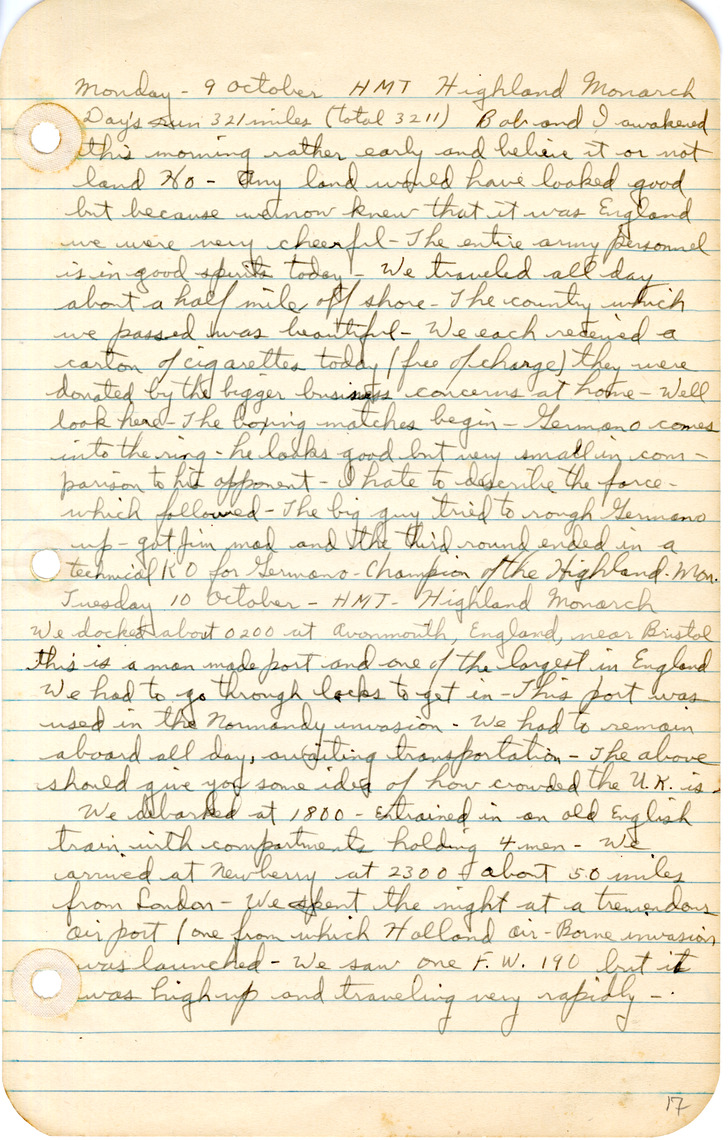 Monday - 9 October HMT Highland Monarch
Day's run 321 miles (total 3211) Bob and I awakened
this morning rather early and believe it or not
land HO - Any land would have looked good
but because we now knew that it was England
we were very cheerful - The entire army personnel
is in good spirits today - We traveled all day
about a half mile off shore - The country which
we passed was beautiful - We each received a
carton of cigarettes today (free of charge) they were
donated by the bigger business concerns at home - Well
look here - The boxing matches begin - Germano comes
into the ring - he looks good but very small in com-
parison to his opponent - I hate to describe the farce -
which followed - The big guy tried to rough Germano
up - got Jim mad and the third round ended in a
technical K O for Germano - Champion of the Highland. Mon.
Tuesday 10 October - HMT - Highland Monarch
We docked about 0200 at Avonmouth, England, near Bristol
this is a man made port and one of the largest in England
We had to go through locks to get in - This port was
used in the Normandy invasion - We had to remain
aboard all day, awaiting transportation - The above
should give you some idea of how crowded the U.K. is
We debarked at 1800 - Entrained in an old English
train with compartments holding 4 men - We
arrived at Newberry at 2300 - about 50 miles
from London - We spent the night at a tremendous
air port (one from which Holland air-Borne invasion
was launched - We saw one F.W. 190 but it
was high up and traveling very rapidly -
17